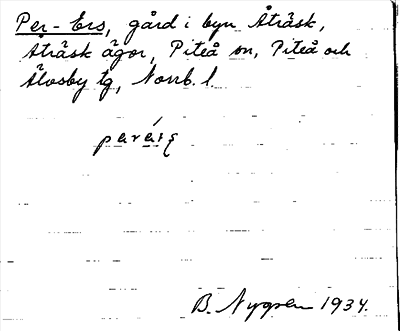 Per-Ers, gård i byn Åträsk,
Åträsk ägor, Piteå sn, Piteå och
Älvsby tg, Norrb. l.
B. Nygren 1934.